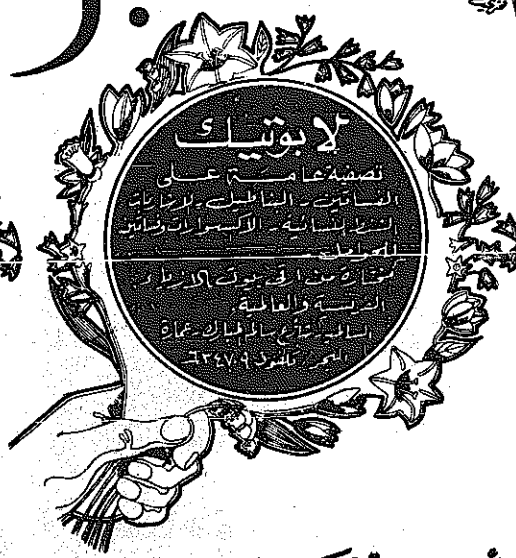 لابوتيك
تصفية عامة على
الفساتين - البناطيل - الإيشاربات
الشنط النسائية - الاكسسوارات وفساتين
للحوامل
مختارة من ارقى بيوت الازياء
الفرنسية والعالمية
السالمية شارع سالم المبارك عمارة
تلفون ٦٣٤٧٠٩